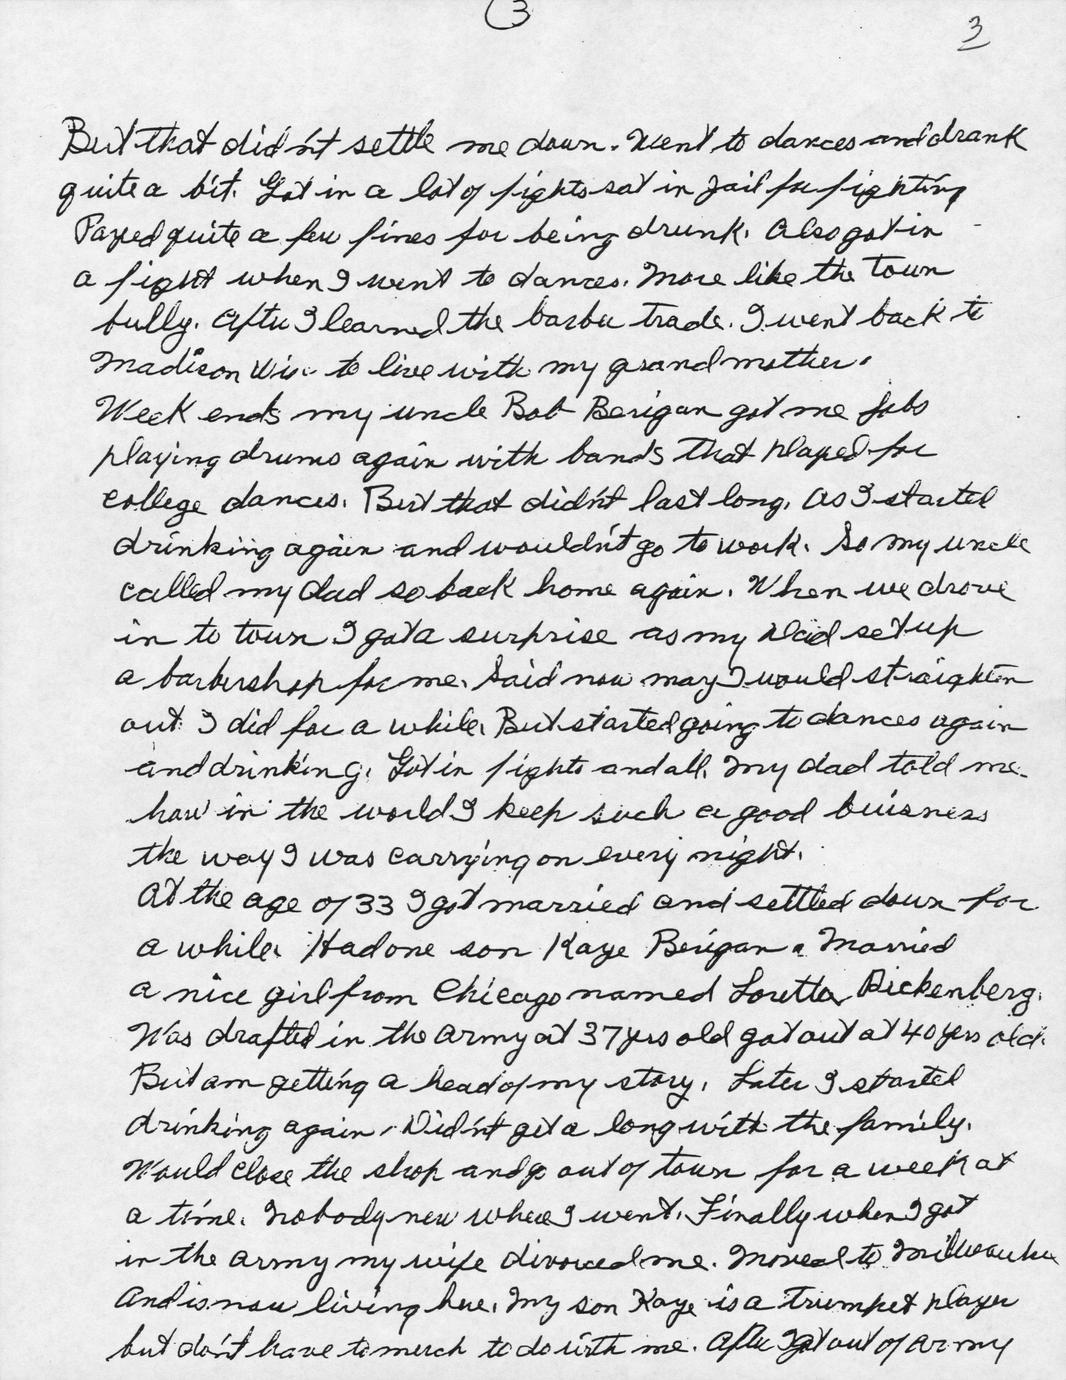 3
3
But that did'nt settle me down. Went to dances and drank
quite a bit. Got in a lot of fights sat in jail for fighting
Payed quite a few fines for being drunk. Also got in
a fight when I went to dances. More like the town
bully. After I learned the barber trade. I went back to
Madison Wis. to live with my grandmother.
Week ends my uncle Bob Berigan got me jobs
playing drums again with bands that played for
college dances. But that didn't last long. As I started
drinking again and wouldn't go to work. So my uncle
called my dad so back home again. When we drove
in to town I got a surprise as my Dad set up
a barbershop for me. Said now may I would straighten
out I did for a while. But started going to dances again
and drinking. Got in fights and all. My dad told me
how in the world I keep such a good buisness
the way I was carrying on every night.
At the age of 33 I got married and settled down for
a while. Had one son Kaye Berigan. Married
a nice girl from Chicago named Loretta Dickenberg.
Was drafted in the army at 37 yrs old got out at 40 yrs old.
But am getting a head of my story. Later I started
drinking again. Did'nt get a long with the family.
Would close the shop and go out of town for a week at
a time. Nobody new where I went. Finally when I got
in the army my wife divorced me. Moved to Milwaukee
And is now living here. My son Kaye is a trumpet player
but don't have to much to do with me. After I got out of army